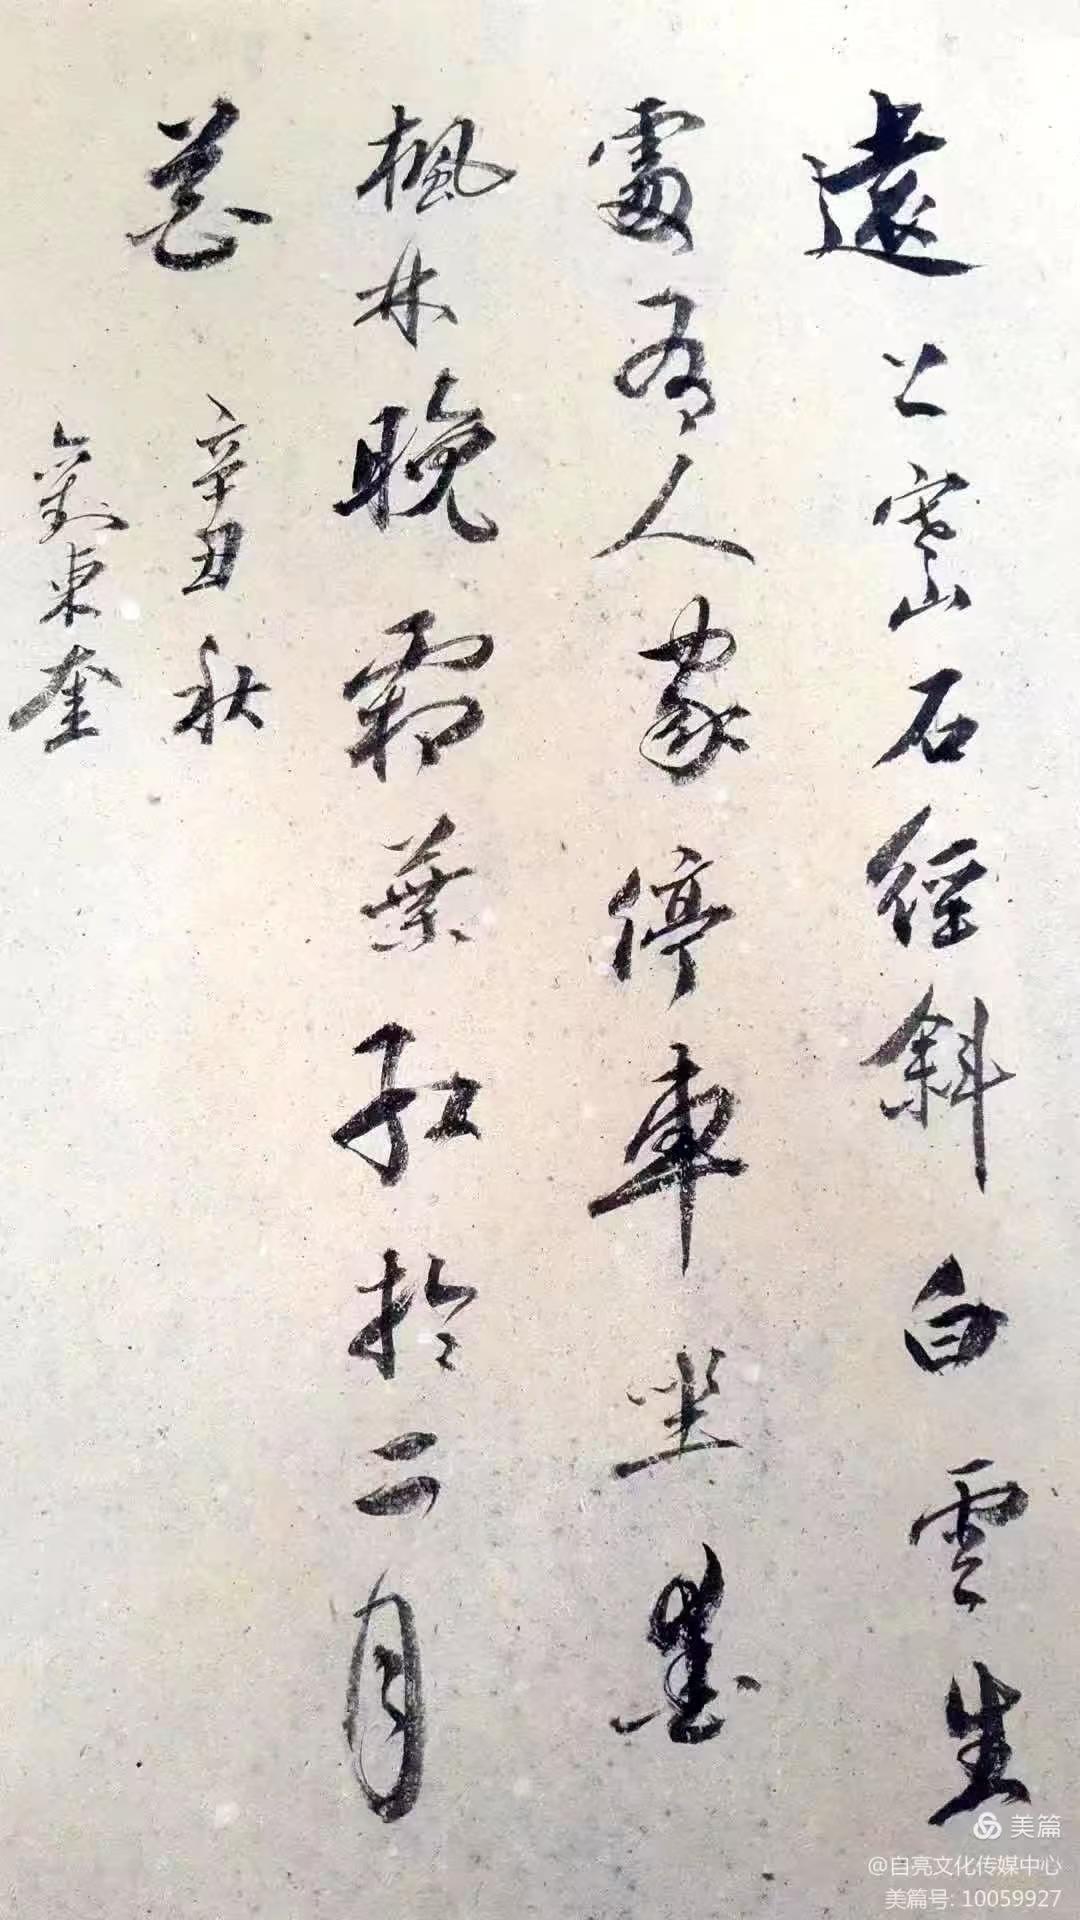 遠上寒山石徑斜白雲生
處有人家停車坐愛
楓林晚霜葉紅於二月
花
辛丑秋
劉東奎
美篇
@自亮文化传媒中心
美篇号: 10059927